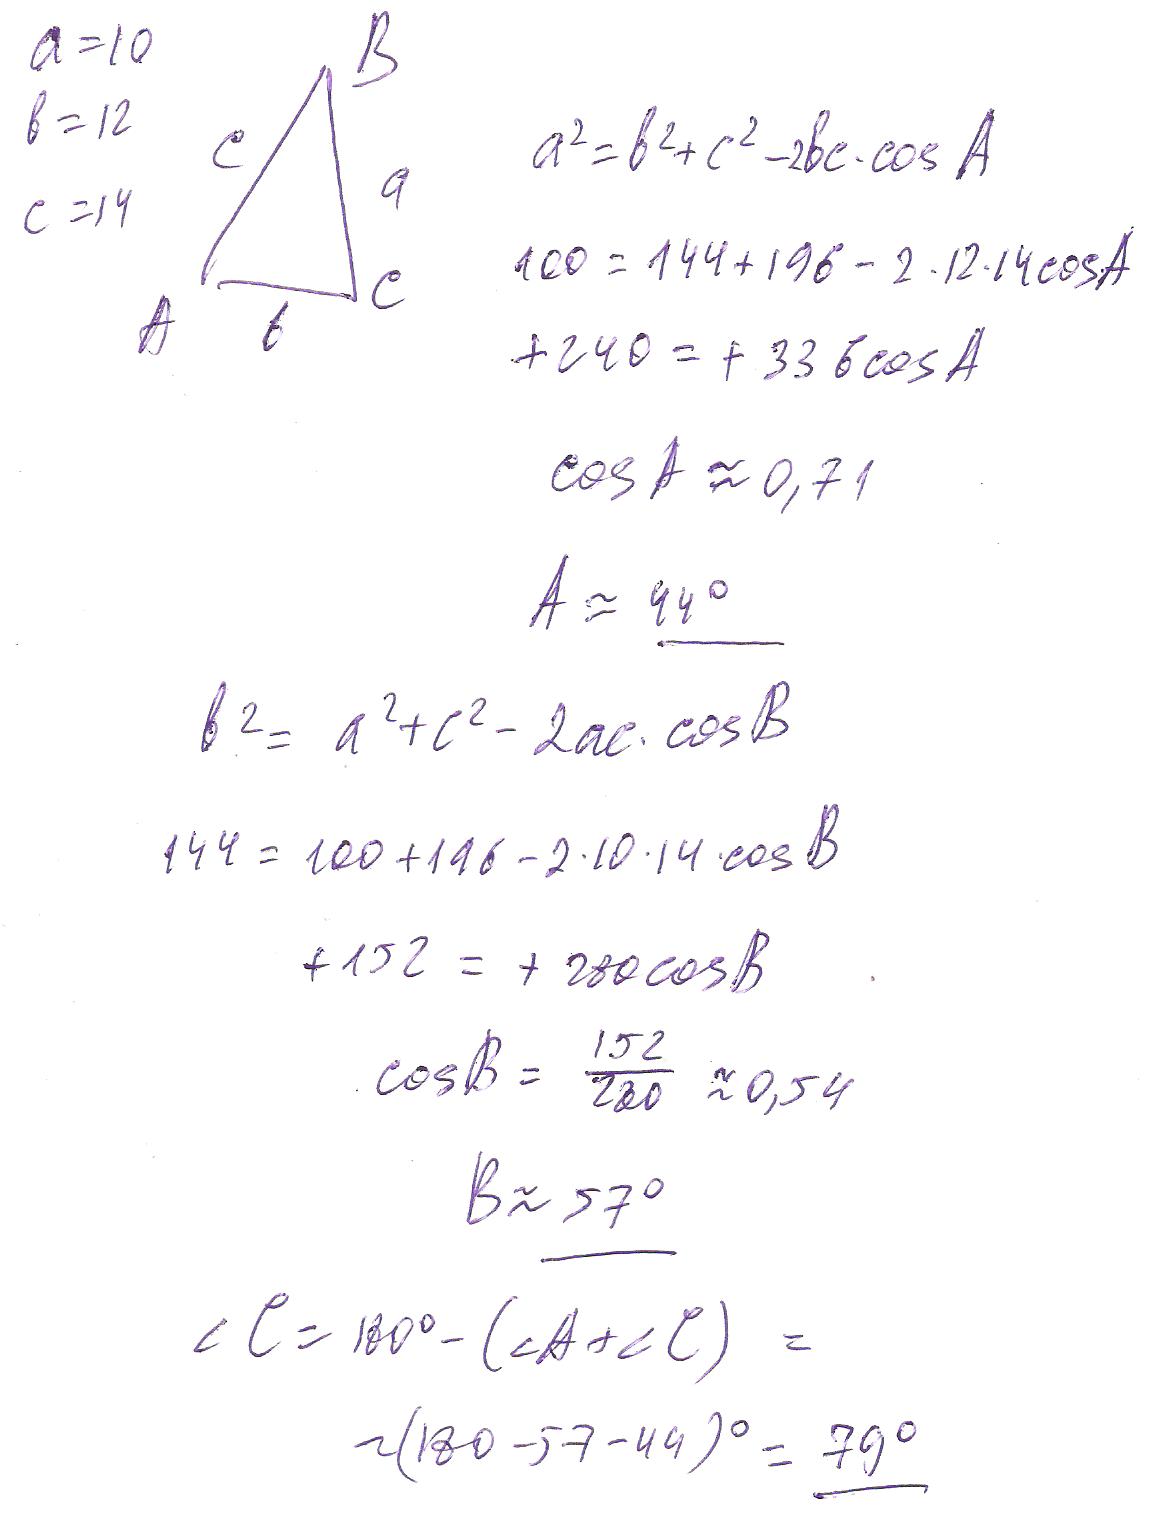 a=10
b=12
c=14
B
c
a
A
b
C
a²=b²+c²-2bc·cos A
100=144+196-2·12·14cosA
+240=+336cosA
cosA≈0,71
A≈44°
b²=a²+c²-2ac·cosB
144=100+196-2·10·14·cosB
+152=+280cosB
cosB=152/280≈0,54
B≈57°
∠C=180°-(∠A+∠C)=
~(180-57-44)°=79°